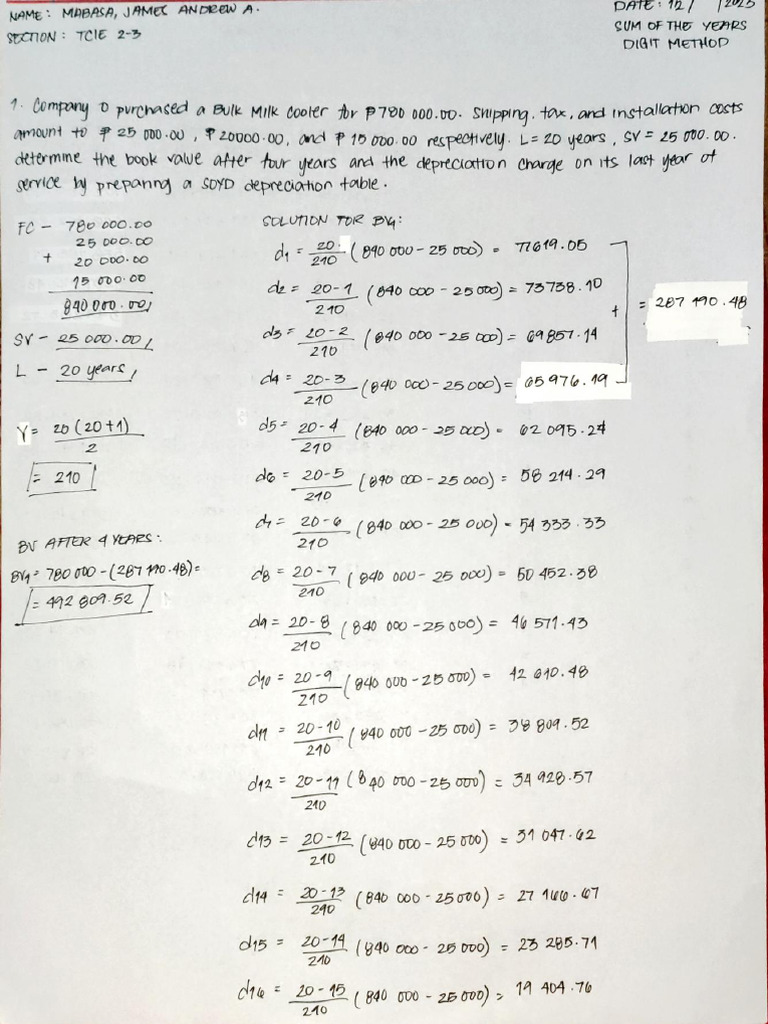 NAME: MABASA, JAMES ANDREW A.
SECTION: TCIE 2-3
DATE: 12/ /2023
SUM OF THE YEARS
DIGIT METHOD
1. Company D purchased a Bulk Milk Cooler for ₱780 000.00. Shipping, tax, and installation costs
amount to ₱ 25 000.00, ₱ 20000.00, and ₱ 15 000.00 respectively. L = 20 years, SV = 25 000.00.
determine the book value after four years and the depreciation charge on its last year of
service by preparing a SOYD depreciation table.
FC - 780 000.00
25 000.00
+ 20 000.00
15 000.00
840 000.00
SV - 25 000.00
L - 20 years
Y = 20(20+1)
2
= 210
BV AFTER 4 YEARS:
BV4 = 780 000 - (287 190.48) =
= 492 809.52
SOLUTION FOR BV4:
d1 = 20/210 (840 000 - 25 000) = 77619.05
d2 = 20-1/210 (840 000 - 25000) = 73738.10
d3 = 20-2/210 (840 000 - 25 000) = 69857.14
d4 = 20-3/210 (840 000 - 25000) = 65976.19
+ = 287 190.48
d5 = 20-4/210 (840 000 - 25 000) = 62 095.24
d6 = 20-5/210 (840 000 - 25 000) = 58 214.29
d7 = 20-6/210 (840 000 - 25 000) = 54 333.33
d8 = 20-7/210 (840 000 - 25 000) = 50 452.38
d9 = 20-8/210 (840 000 - 25 000) = 46 571.43
d10 = 20-9/210 (840 000 - 25 000) = 42 690.48
d11 = 20-10/210 (840 000 - 25 000) = 38 809.52
d12 = 20-11/210 (840 000 - 25 000) = 34 928.57
d13 = 20-12/210 (840 000 - 25 000) = 31 047.62
d14 = 20-13/210 (840 000 - 25000) = 27 166.67
d15 = 20-14/210 (840 000 - 25 000) = 23 285.71
d16 = 20-15/210 (840 000 - 25 000) = 19 404.76